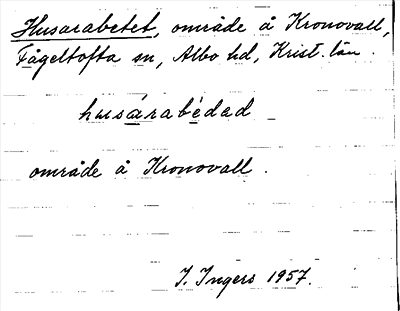 Husarabetet, område å Kronovall,
Fågeltofta sn, Albo hd, Krist. län.
husárabèdad
område å Kronovall.
I. Ingers 1957.